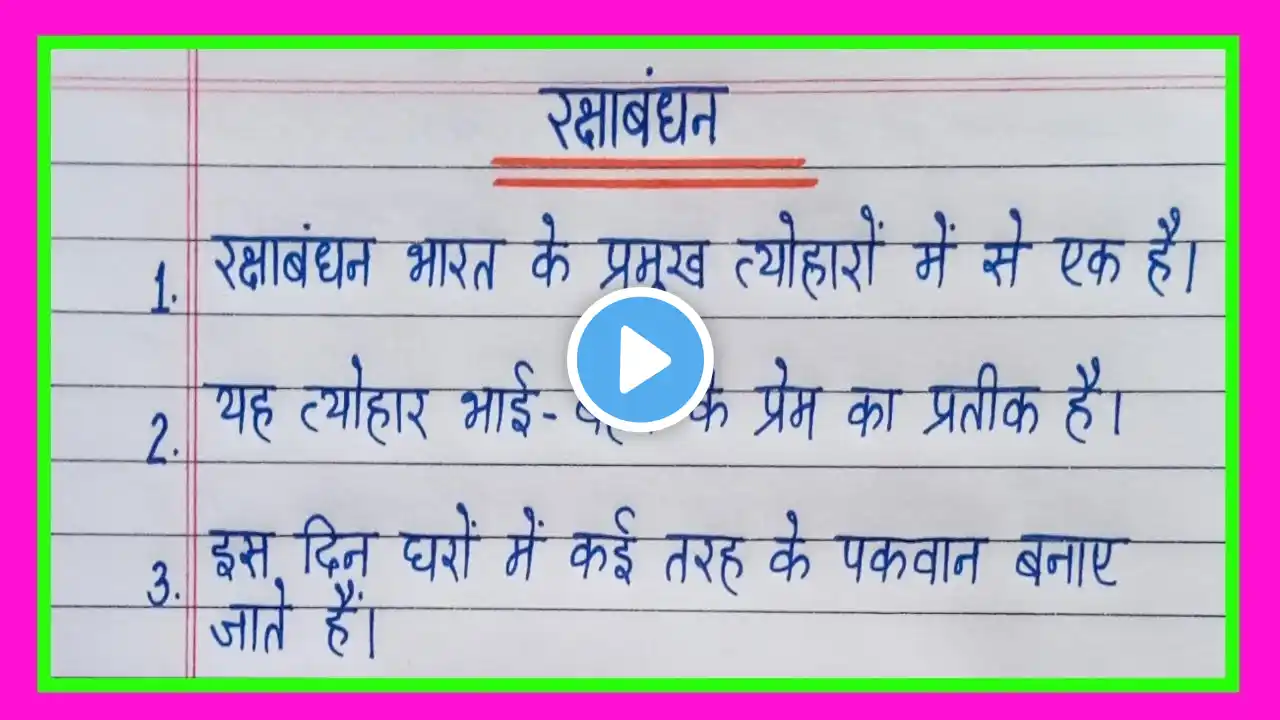 रक्षाबंधन
1. रक्षाबंधन भारत के प्रमुख त्योहारों में से एक है।
2. यह त्योहार भाई- के प्रेम का प्रतीक है।
3. इस दिन घरों में कई तरह के पकवान बनाए
जाते हैं।